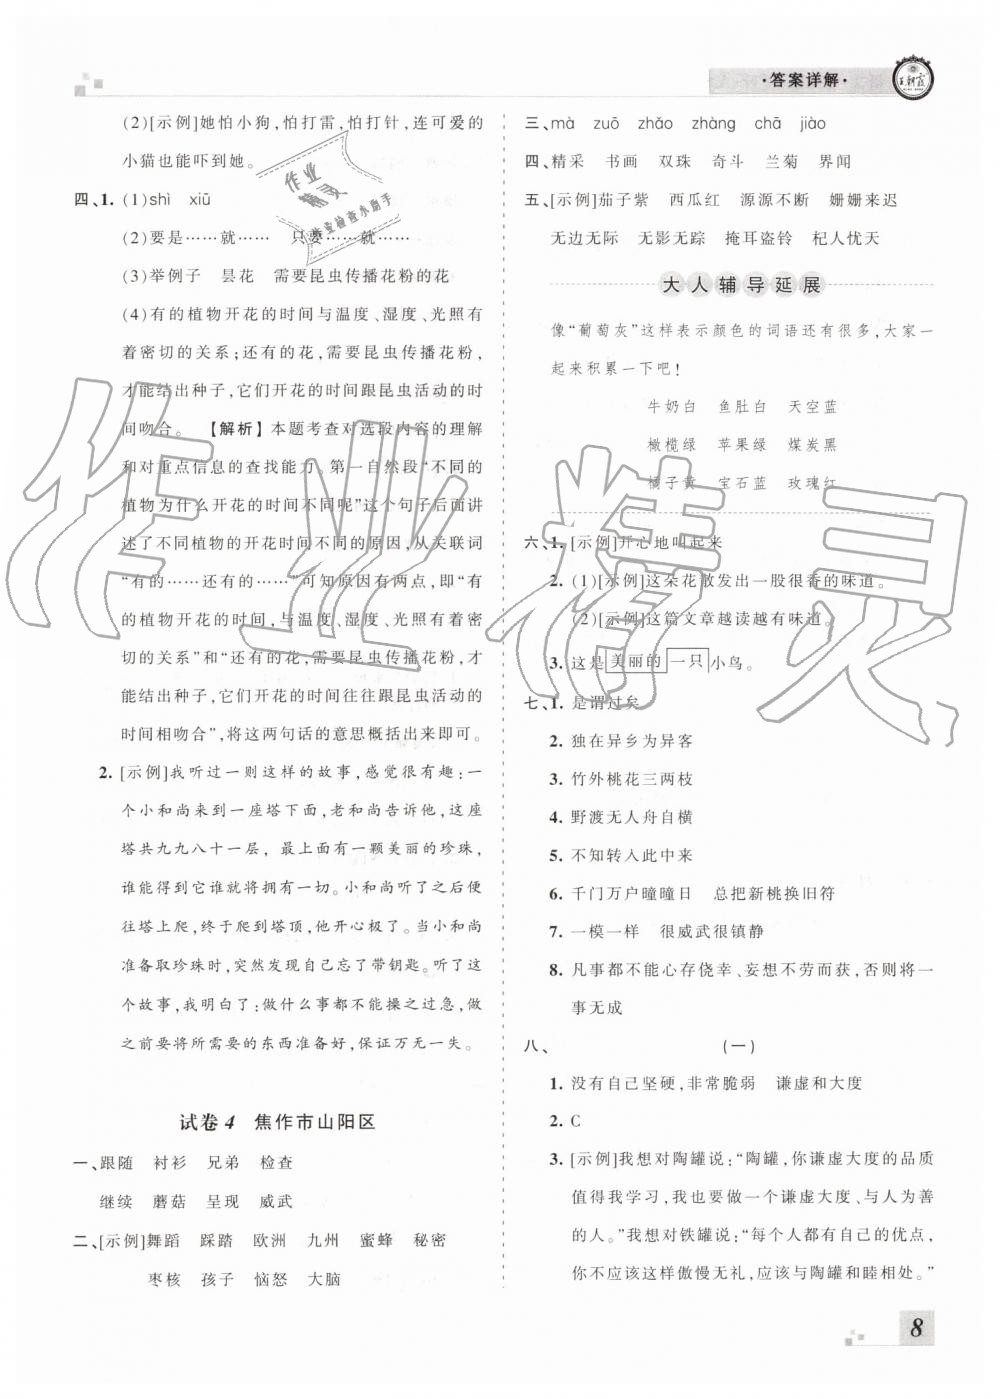 ·答案详解·
王朝霞
(2)[示例]她怕小狗,怕打雷,怕打针,连可爱的
小猫也能吓到她。
四、1. (1)shì xiū
(2)要是……就…… 只要……就……
(3)举例子 昙花 需要昆虫传播花粉的花
(4)有的植物开花的时间与温度、湿度、光照有
着密切的关系;还有的花,需要昆虫传播花粉,
才能结出种子,它们开花的时间跟昆虫活动的时
间吻合。 【解析】本题考查对选段内容的理解
和对重点信息的查找能力。第一自然段“不同的
植物为什么开花的时间不同呢”这个句子后面讲
述了不同植物的开花时间不同的原因,从关联词
“有的……还有的……”可知原因有两点,即“有
的植物开花的时间,与温度、湿度、光照有着密
切的关系”和“还有的花,需要昆虫传播花粉,才
能结出种子,它们开花的时间往往跟昆虫活动的
时间相吻合”,将这两句话的意思概括出来即可。
2. [示例]我听过一则这样的故事,感觉很有趣:一
个小和尚来到一座塔下面,老和尚告诉他,这座
塔共九九八十一层, 最上面有一颗美丽的珍珠,
谁能得到它谁就将拥有一切。小和尚听了之后便
往塔上爬,终于爬到塔顶,他开心极了。当小和尚
准备取珍珠时,突然发现自己忘了带钥匙。听了这
个故事,我明白了:做什么事都不能操之过急,做
之前要将所需要的东西准备好,保证万无一失。
试卷4 焦作市山阳区
一、跟随 衬衫 兄弟 检查
继续 蘑菇 呈现 威武
二、[示例]舞蹈 踩踏 欧洲 九州 蜜蜂 秘密
枣核 孩子 恼怒 大脑
三、mà zuō zhǎo zhàng chā jiào
四、精采 书画 双珠 奇斗 兰菊 界闻
五、[示例]茄子紫 西瓜红 源源不断 姗姗来迟
无边无际 无影无踪 掩耳盗铃 杞人忧天
大人辅导延展
像“葡萄灰”这样表示颜色的词语还有很多,大家一
起来积累一下吧!
牛奶白 鱼肚白 天空蓝
橄榄绿 苹果绿 煤炭黑
橘子黄 宝石蓝 玫瑰红
六、1. [示例]开心地叫起来
2. (1)[示例]这朵花散发出一股很香的味道。
(2)[示例]这篇文章越读越有味道。
3. 这是 美丽的 一只 小鸟。
七、1. 是谓过矣
2. 独在异乡为异客
3. 竹外桃花三两枝
4. 野渡无人舟自横
5. 不知转入此中来
6. 千门万户曈曈日 总把新桃换旧符
7. 一模一样 很威武很镇静
8. 凡事都不能心存侥幸、妄想不劳而获,否则将一
事无成
八、 (一)
1. 没有自己坚硬,非常脆弱 谦虚和大度
2. C
3. [示例]我想对陶罐说:“陶罐,你谦虚大度的品质
值得我学习,我也要做一个谦虚大度、与人为善
的人。”我想对铁罐说:“每个人都有自己的优点,
你不应该这样傲慢无礼,应该与陶罐和睦相处。”
8
作业精灵
作业
精灵
作业检查小助手